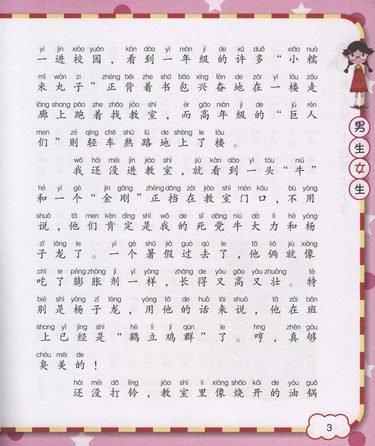 yí jìn xiào yuán kàn dào yī nián jí de xǔ duō xiǎo nuò
一进校园，看到一年级的许多“小糯
mǐ wán zi zhèng bēi zhe shū bāo xīng fèn de zài yī lóu zǒu
米丸子”正背着书包兴奋地在一楼走
láng shang pǎo zhe zhǎo jiào shì ér gāo nián jí de jù rén
廊上跑着找教室，而高年级的“巨人
men zé qīng chē shú lù de shàng le lóu
们”则轻车熟路地上了楼。
wǒ hái méi jìn jiào shì jiù kàn dào yì tóu niú
我还没进教室，就看到一头“牛”
hé yí gè jīn gāng zhèng dǎng zài jiào shì mén kǒu bù yòng
和一个“金刚”正挡在教室门口，不用
shuō tā men kěn dìng shì wǒ de sǐ dǎng niú dà lì hé yáng
说，他们肯定是我的死党牛大力和杨
zǐ lóng le yí gè shǔ jià guò qù le tā liǎ jiù xiàng
子龙了。一个暑假过去了，他俩就像
chī le péng zhàng jì yí yàng zhǎng de yòu gāo yòu zhuàng tè
吃了膨胀剂一样，长得又高又壮。特
bié shì yáng zǐ lóng yòng tā de huà lái shuō tā zài bān
别是杨子龙，用他的话来说，他在班
shang yǐ jīng shì hè lì jī qún le hng zhēn gòu
上已经是“鹤立鸡群”了。哼，真够
chòu měi de
臭美的！
hái méi dǎ líng jiào shì li xiàng shāo kāi de yóu guō
还没打铃，教室里像烧开的油锅
男
生
女
生
3